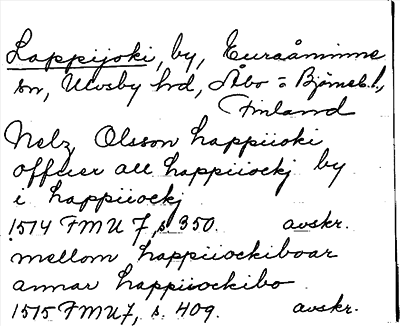 Lappijoki, by, Euraåminne
sn, Ulvsby hd, Åbo = Björneb. l.,
Finland
Nelz Olsson happiioki
offuer all happiiockj by
i happiiockj
1514 FMU 7, s. 350. avskr.
mellom happiiockiboar
annar happiiockibo
1515 FMU 7, s. 409. avskr.